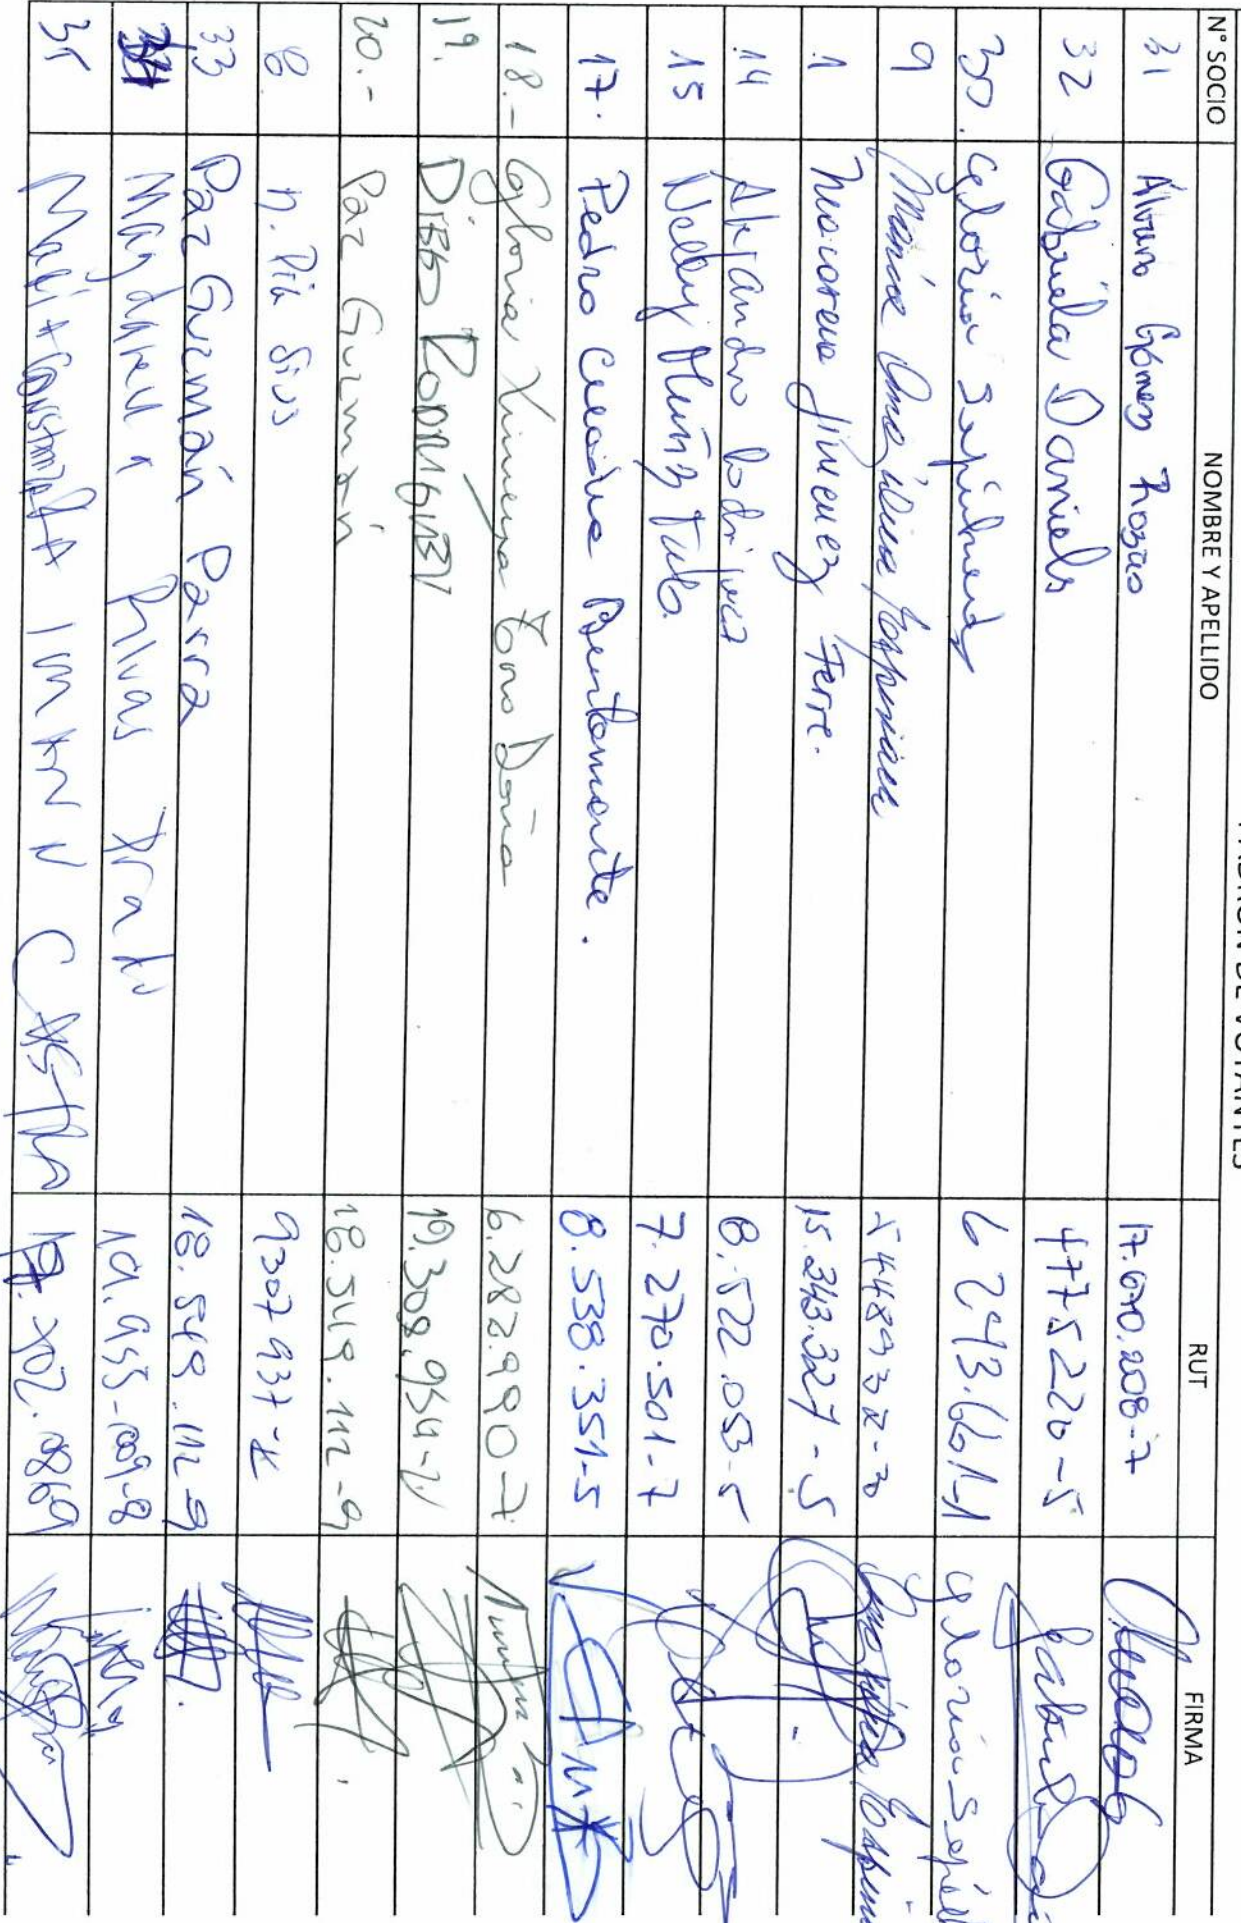 PADRÓN DE VOTANTES
N° SOCIO NOMBRE Y APELLIDO RUT FIRMA
31 Álvaro Gómez Rozas 17.670.208-7
32 Gabriela Daniels 4775220-5
30. Gloria Sepúlveda 6 243.661-1 Gloria Sepúl
9 María Angélica Espinace 5448932-3
1 Macarena Jimenez Ferre. 15.343.327-5
14 Alejandro Rodriguez 8.522.053-5
15 Nelly Muñoz Tulo 7.270.501-7
17. Pedro Cuadra Bentomante. 8.538.351-5
18.- Gloria Ximena Toro Doña 6.282.990-7
19. DIEGO RODRIGUEZ 19.308.954-
20.- Paz Guzmán 18.549.112-9
8 M. Pía Silva 9307937-K
33 Paz Guzmán Parra 18.549.112-9
34 Magdalena Rivas Prado 19.955-009-8
35 María Constanza CASTRO .302.0869